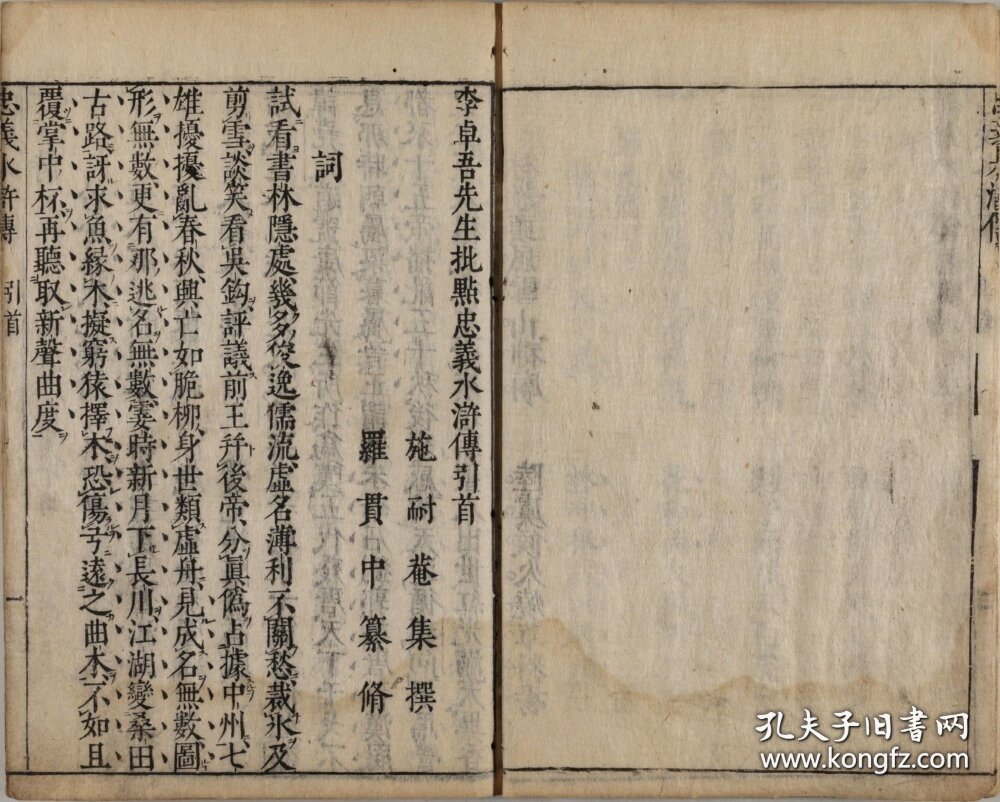 李卓吾先生批點忠義水滸傳引首
施耐菴集撰
羅貫中纂脩
詞
試看書林隱處、幾多俊逸儒流、虛名薄利不關愁、裁冰及
剪雪、談笑看吳鈎、評議前王幷後帝、分眞僞占據中州、七
雄擾擾亂春秋、興亡如脆柳、身世類虛舟、見成名無數、圖
形無數、更有那逃名無數、霎時新月下長川、江湖變桑田
古路、訝求魚緣木、擬窮猿擇木、恐傷弓遠之曲木、不如且
覆掌中杯、再聽取新聲曲度、
忠義水滸傳 引首 一
孔夫子旧書网
www.kongfz.com